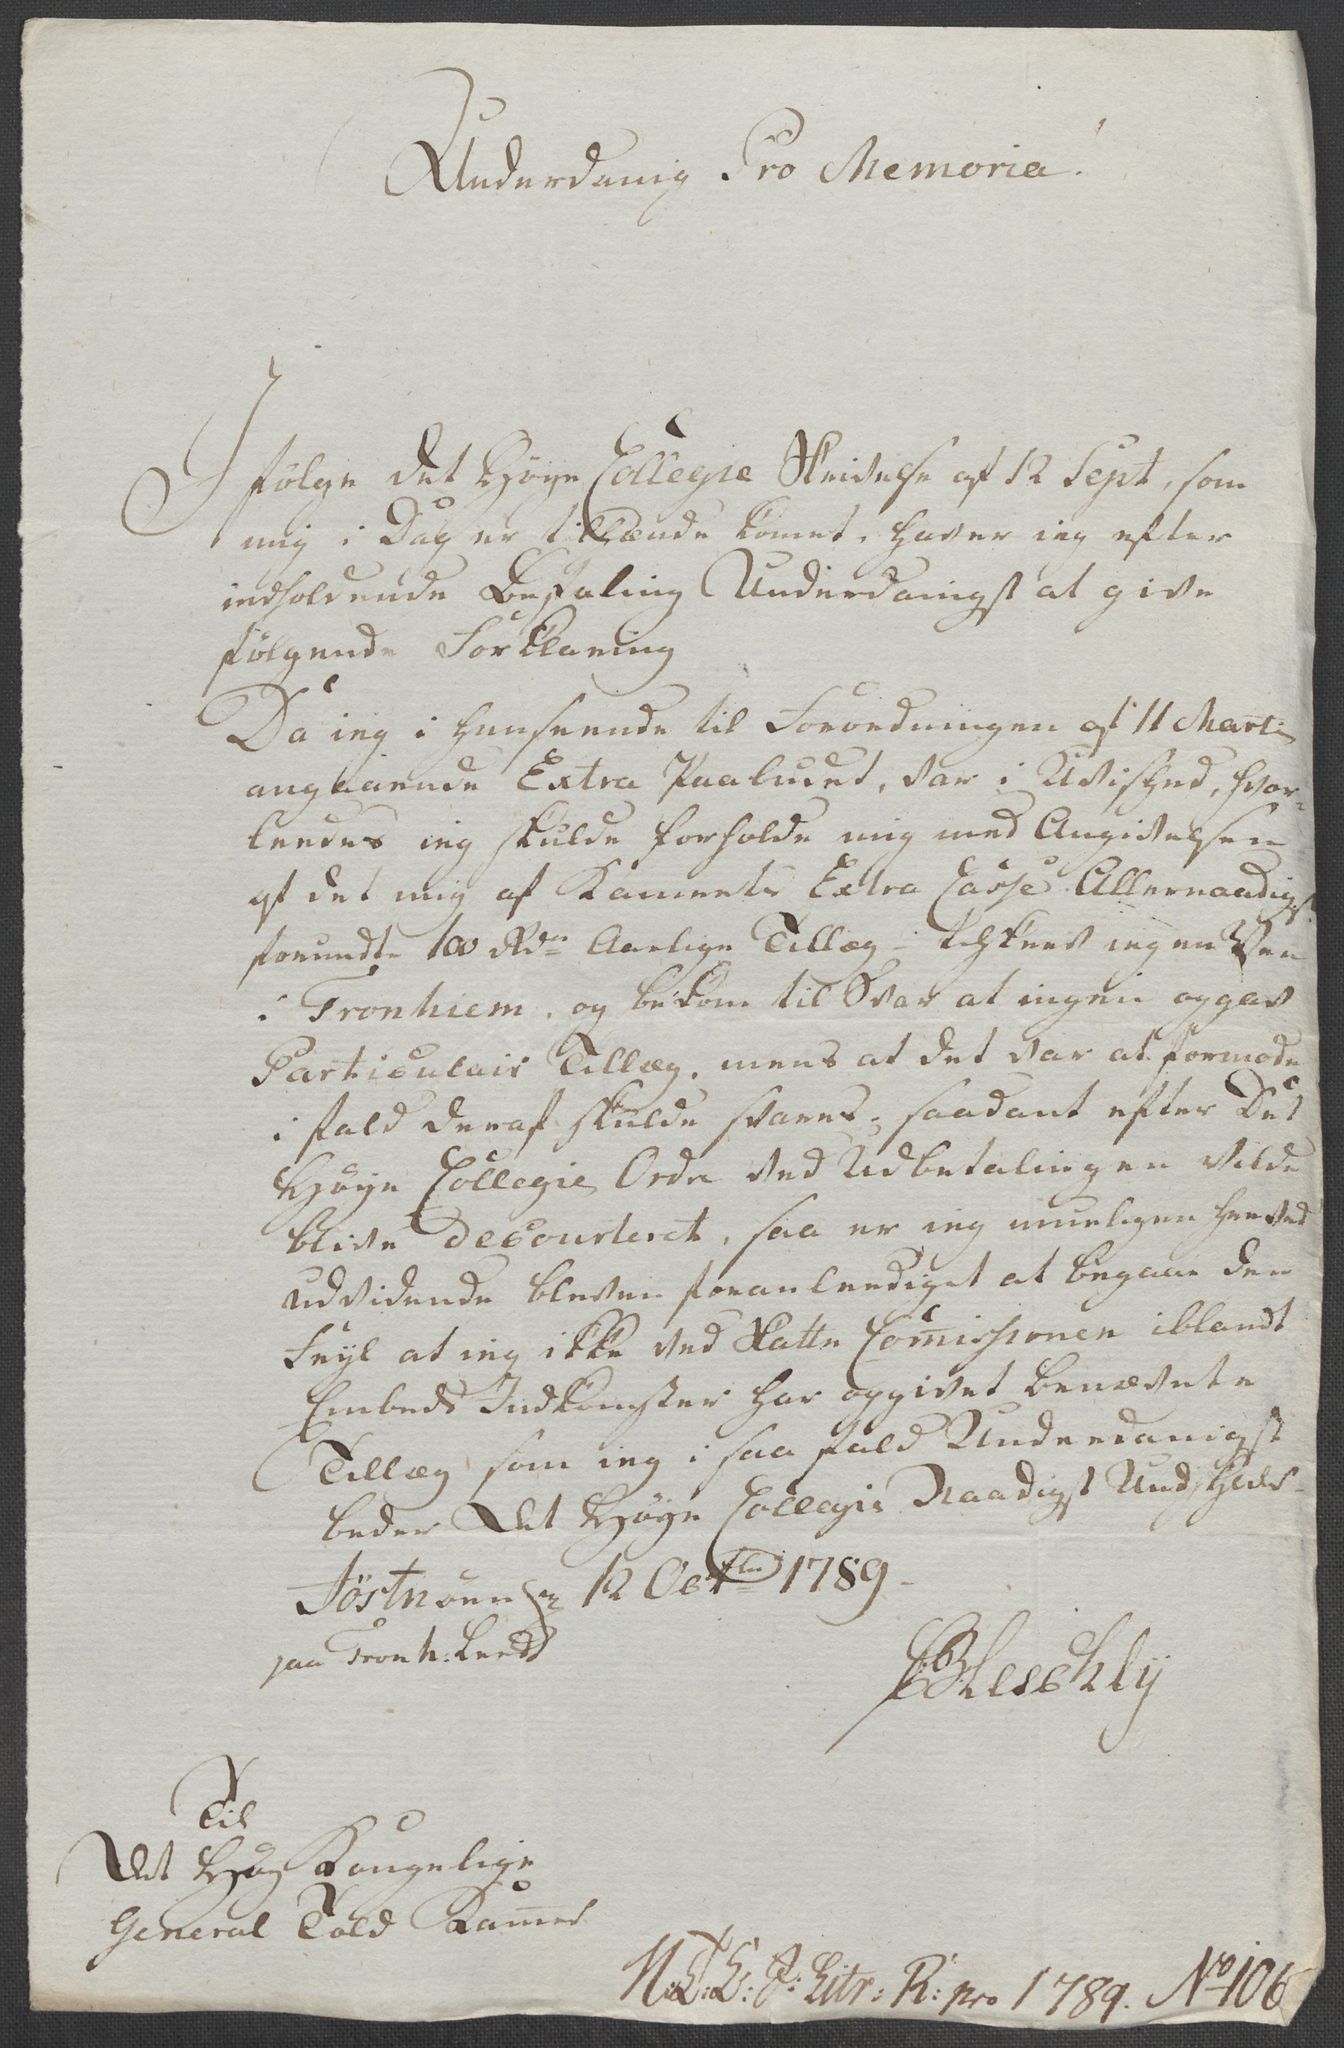 Underdanig Pro Memoria!
I følge det Høye Collegie Skrivelse af 12 Sept, som
mig i Dag er tilhænde komet, haver ieg efter
indholdende Befaling Underdanigst at give
følgende Forklaring
Da ieg i henseende til Forordningen af 11 Marti
angaaende Extra Paabudet, var i Uvished, hvor-
ledes ieg skulde forholde mig med Angivelsen
af det mig af Kamerets Extra Casse Allernaadigst
forundte 100 Rdr Aarlige Tillæg - tilskrev ieg en Ven
i Tronhiem, og bekom til Svar at ingen opgav
Particulair Tillæg, mens at det var at formode
i fald deraf skulde svares, saadant efter Det
Høye Collegie Ordre ved Udbetalingen vilde
blive decourteret, saa er ieg mueligen herved
uvidende bleven foranlediget at begaae den
Feyl at ieg ikke ved Skatte Comissionen iblandt
Embeds Indkomster har opgivet benævnte
Tillæg som ieg i saa fald Underdanigst
beder Det Høye Collegie Naadigst Undskylde-
12 Octbr 1789
paa Tronh: Leedt
Til
Det Høy Kongelige
General Told Kamer
N. T. L: J: Litr: R: pro 1789. No 106